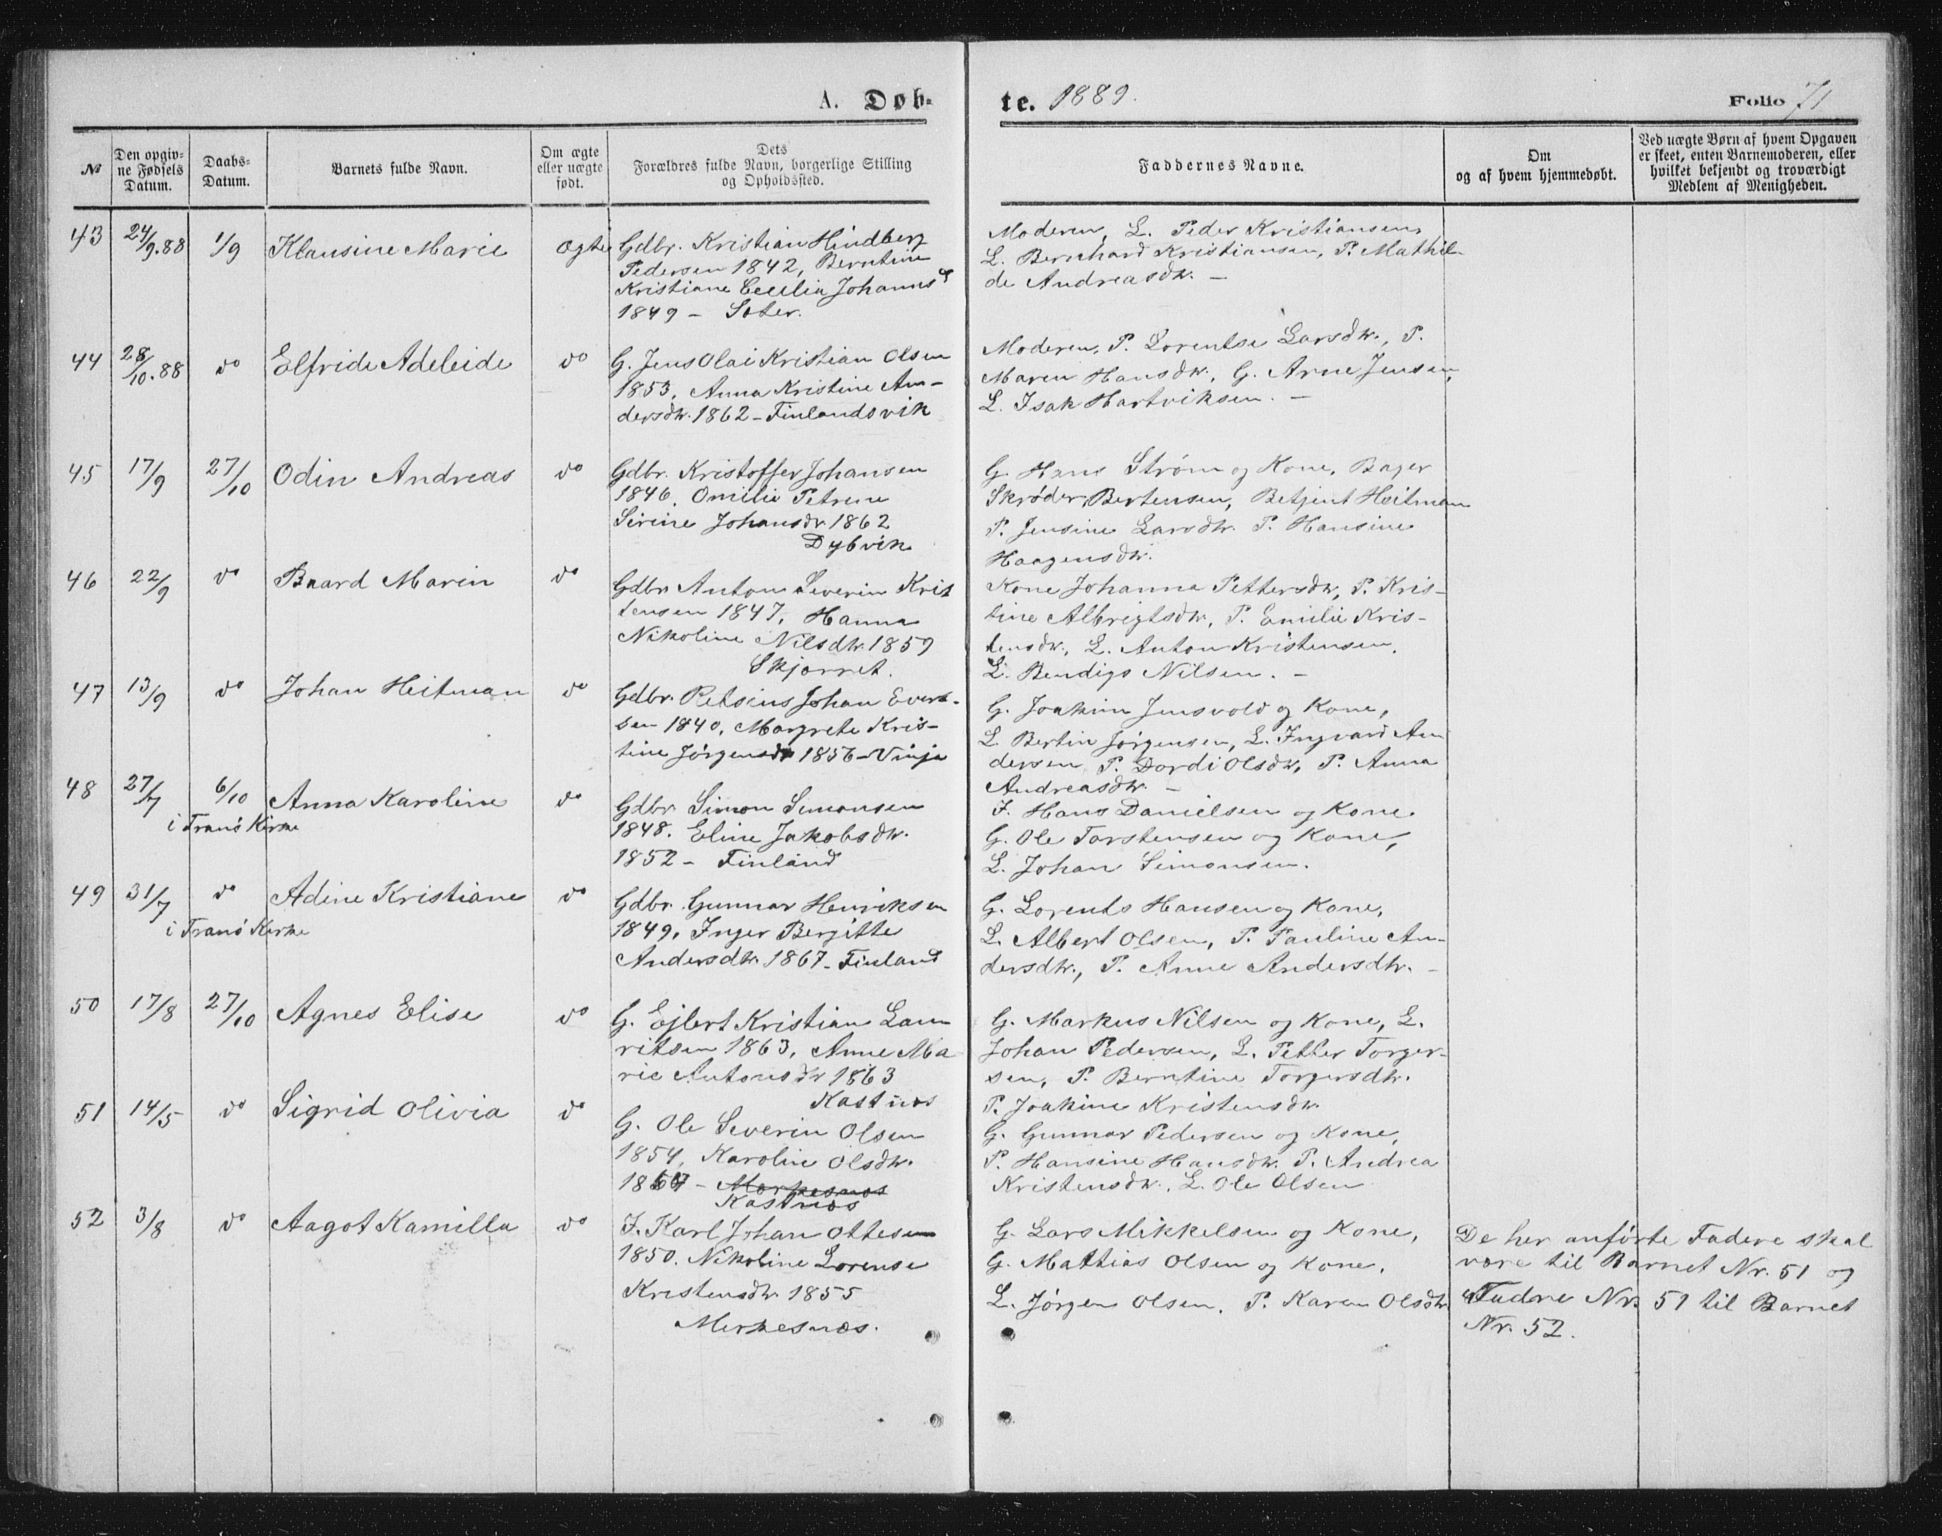 A. Døb-
te. 1889.
Folio 71
№
Den opgiv-
ne Fødsels
Datum.
Daabs-
Datum.
Barnets fulde Navn.
Om ægte
eller uægte
født.
Dets
Forældres fulde Navn, borgerlige Stilling
og Opholdssted.
Faddernes Navne.
Om
og af hvem hjemmedøbt.
Ved uægte Børn af hvem Opgaven
er skeet, enten Barnemoderen, eller
hvilket bekjendt og troværdigt
Medlem af Menigheden.
43 24/9.88 1/9 Klausine Marie Ægte
Gdbr. Kristian Hindberg
Pedersen 1842, Berntine
Kristiane Cecilia Johannsd
1849 –
Moderen, L. Peder Kristiansen,
L. Bernhard Kristiansen, P. Mathil-
de Andreasdtr. –
44 28/10.88 do Elfride Adeleide do
G. Jens Olai Kristian Olsen
1853, Anna Kristine An-
dersdtr. 1862 – Finlandsvik
Moderen, P. Lorentse Larsdtr., P.
Maren Hansdtr., G. Arne Jensen,
L. Isak Hartviksen. –
45 17/9 27/10 Odin Andreas do
Gdbr. Kristoffer Johansen
1846, Omilie Petrine
Sirine Johansdr. 1862
Dybvik
G. Hans Strøm og Kone, Bager
Skrøder Bertensen, Betjent Heitman
P. Jensine Larsdtr. P. Hansine
Haagensdtr.
46 22/9 do Baard Marin do
Gdbr Anton Severin Krist
tensen 1847, Hanna
Nikoline Nilsdtr. 1859
Skjærret.
Kone Johanna Pettersdtr, P. Kris-
tine Albrigtsdtr, P. Emilie Kris-
tensdtr, L. Anton Kristensen,
L. Bendigs Nilsen. –
47 13/9 do Johan Heitman do
Gdbr. Petsius Johan Evert-
sen 1840, Margrete Kris-
tine Jørgensdtr 1856 – Vinje
G. Joakim Jensvold og Kone,
L. Bertin Jørgensen, L. Ingvard An
dersen P. Dordi Olsdtr, P. Anna
Andreasdtr. –
48 27/7 6/10 Anna Karoline do
i Tranö Kirke
Gdbr Simon Simonsen
1848. Eline Jakobsdtr.
1852 – Finland
F. Hans Danielsen og Kone.
G. Ole Torstensen og Kone,
L. Johan Simonsen.
49 31/7 do Adine Kristiane do
i Tranö Kirke
Gdbr. Gunnar Henriksen
1849, Inger Bergitte
Andersdtr. 1867 – Finland
G. Lorents Hansen og Kone,
L. Albert Olsen, P. Pauline An-
dersdtr., P. Anne Andersdtr. –
50 17/8 27/10 Agnes Elise do
G. Ejlert Kristian Lau
ritsen 1863, Anne Ma
rie Antonsdtr 1863
Kastnæs
G. Markus Nilsen og Kone, L.
Johan Pedersen, L. Petter Torger-
sen, P. Berntine Torgersdtr.
P. Joakine Kristensdtr
51 14/5 do Sigrid Olivia do
G. Ole Severin Olsen
1854, Karoline Olsdtr.
Morkesnæs
Kastnæs
G. Gunnar Pedersen og Kone,
P. Hansine Hansdtr. P. Andrea
Kristensdtr, L. Ole Olsen
52 3/8 do Aagot Kamilla do
F. Karl Johan Ottesen
1850. Nikoline Lorense
Kristensdtr. 1855
Merkesnæs.
G. Lars Mikkelsen og Kone,
G. Mattias Olsen og Kone,
L. Jørgen Olsen, P. Karen Olsdtr
De her anførte Fadere skal
være til Barnet Nr. 51 og
Fadre Nr. 51 til Barnet
Nr. 52.